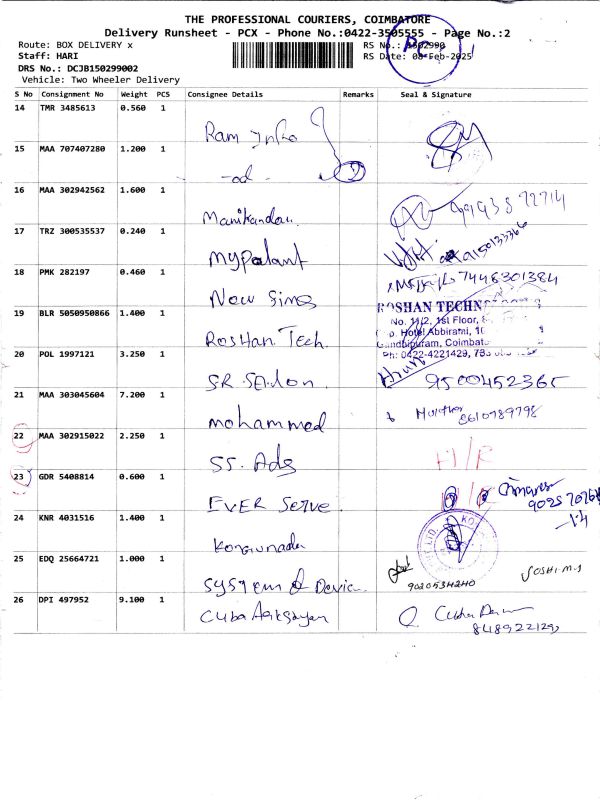 THE PROFESSIONAL COURIERS, COIMBATORE
Delivery Runsheet - PCX - Phone No.:0422-3505555 - Page No.:2
Route: BOX DELIVERY x
RS No.: 1502990
Staff: HARI
RS Date: 08-Feb-2025
DRS No.: DCJB150299002
Vehicle: Two Wheeler Delivery
S No Consignment No Weight PCS Consignee Details Remarks Seal & Signature
14 TMR 3485613 0.560 1
Ram Info
15 MAA 707407280 1.200 1
-od-
16 MAA 302942562 1.600 1
Manikandan
17 TRZ 300535537 0.240 1
mypalant
18 PMK 282197 0.460 1
7448301384
New Sims
19 BLR 5050950866 1.400 1
ROSHAN TECHN
No. 11/2, 1st Floor,
Hotel Abbirami,
Roshan Tech
Gandhipuram, Coimbat
Ph: 0422-4221429,
20 POL 1997121 3.250 1
SR Selon
9500452365
21 MAA 303045604 7.200 1
mohammed
8610789798
22 MAA 302915022 2.250 1
SS. Ads
23 GDR 5408814 0.600 1
EVER Serve
24 KNR 4031516 1.400 1
Kongunadu
25 EDQ 25664721 1.000 1
System & Devic
9020534240
JOSHI M.S
26 DPI 497952 9.100 1
Cuba